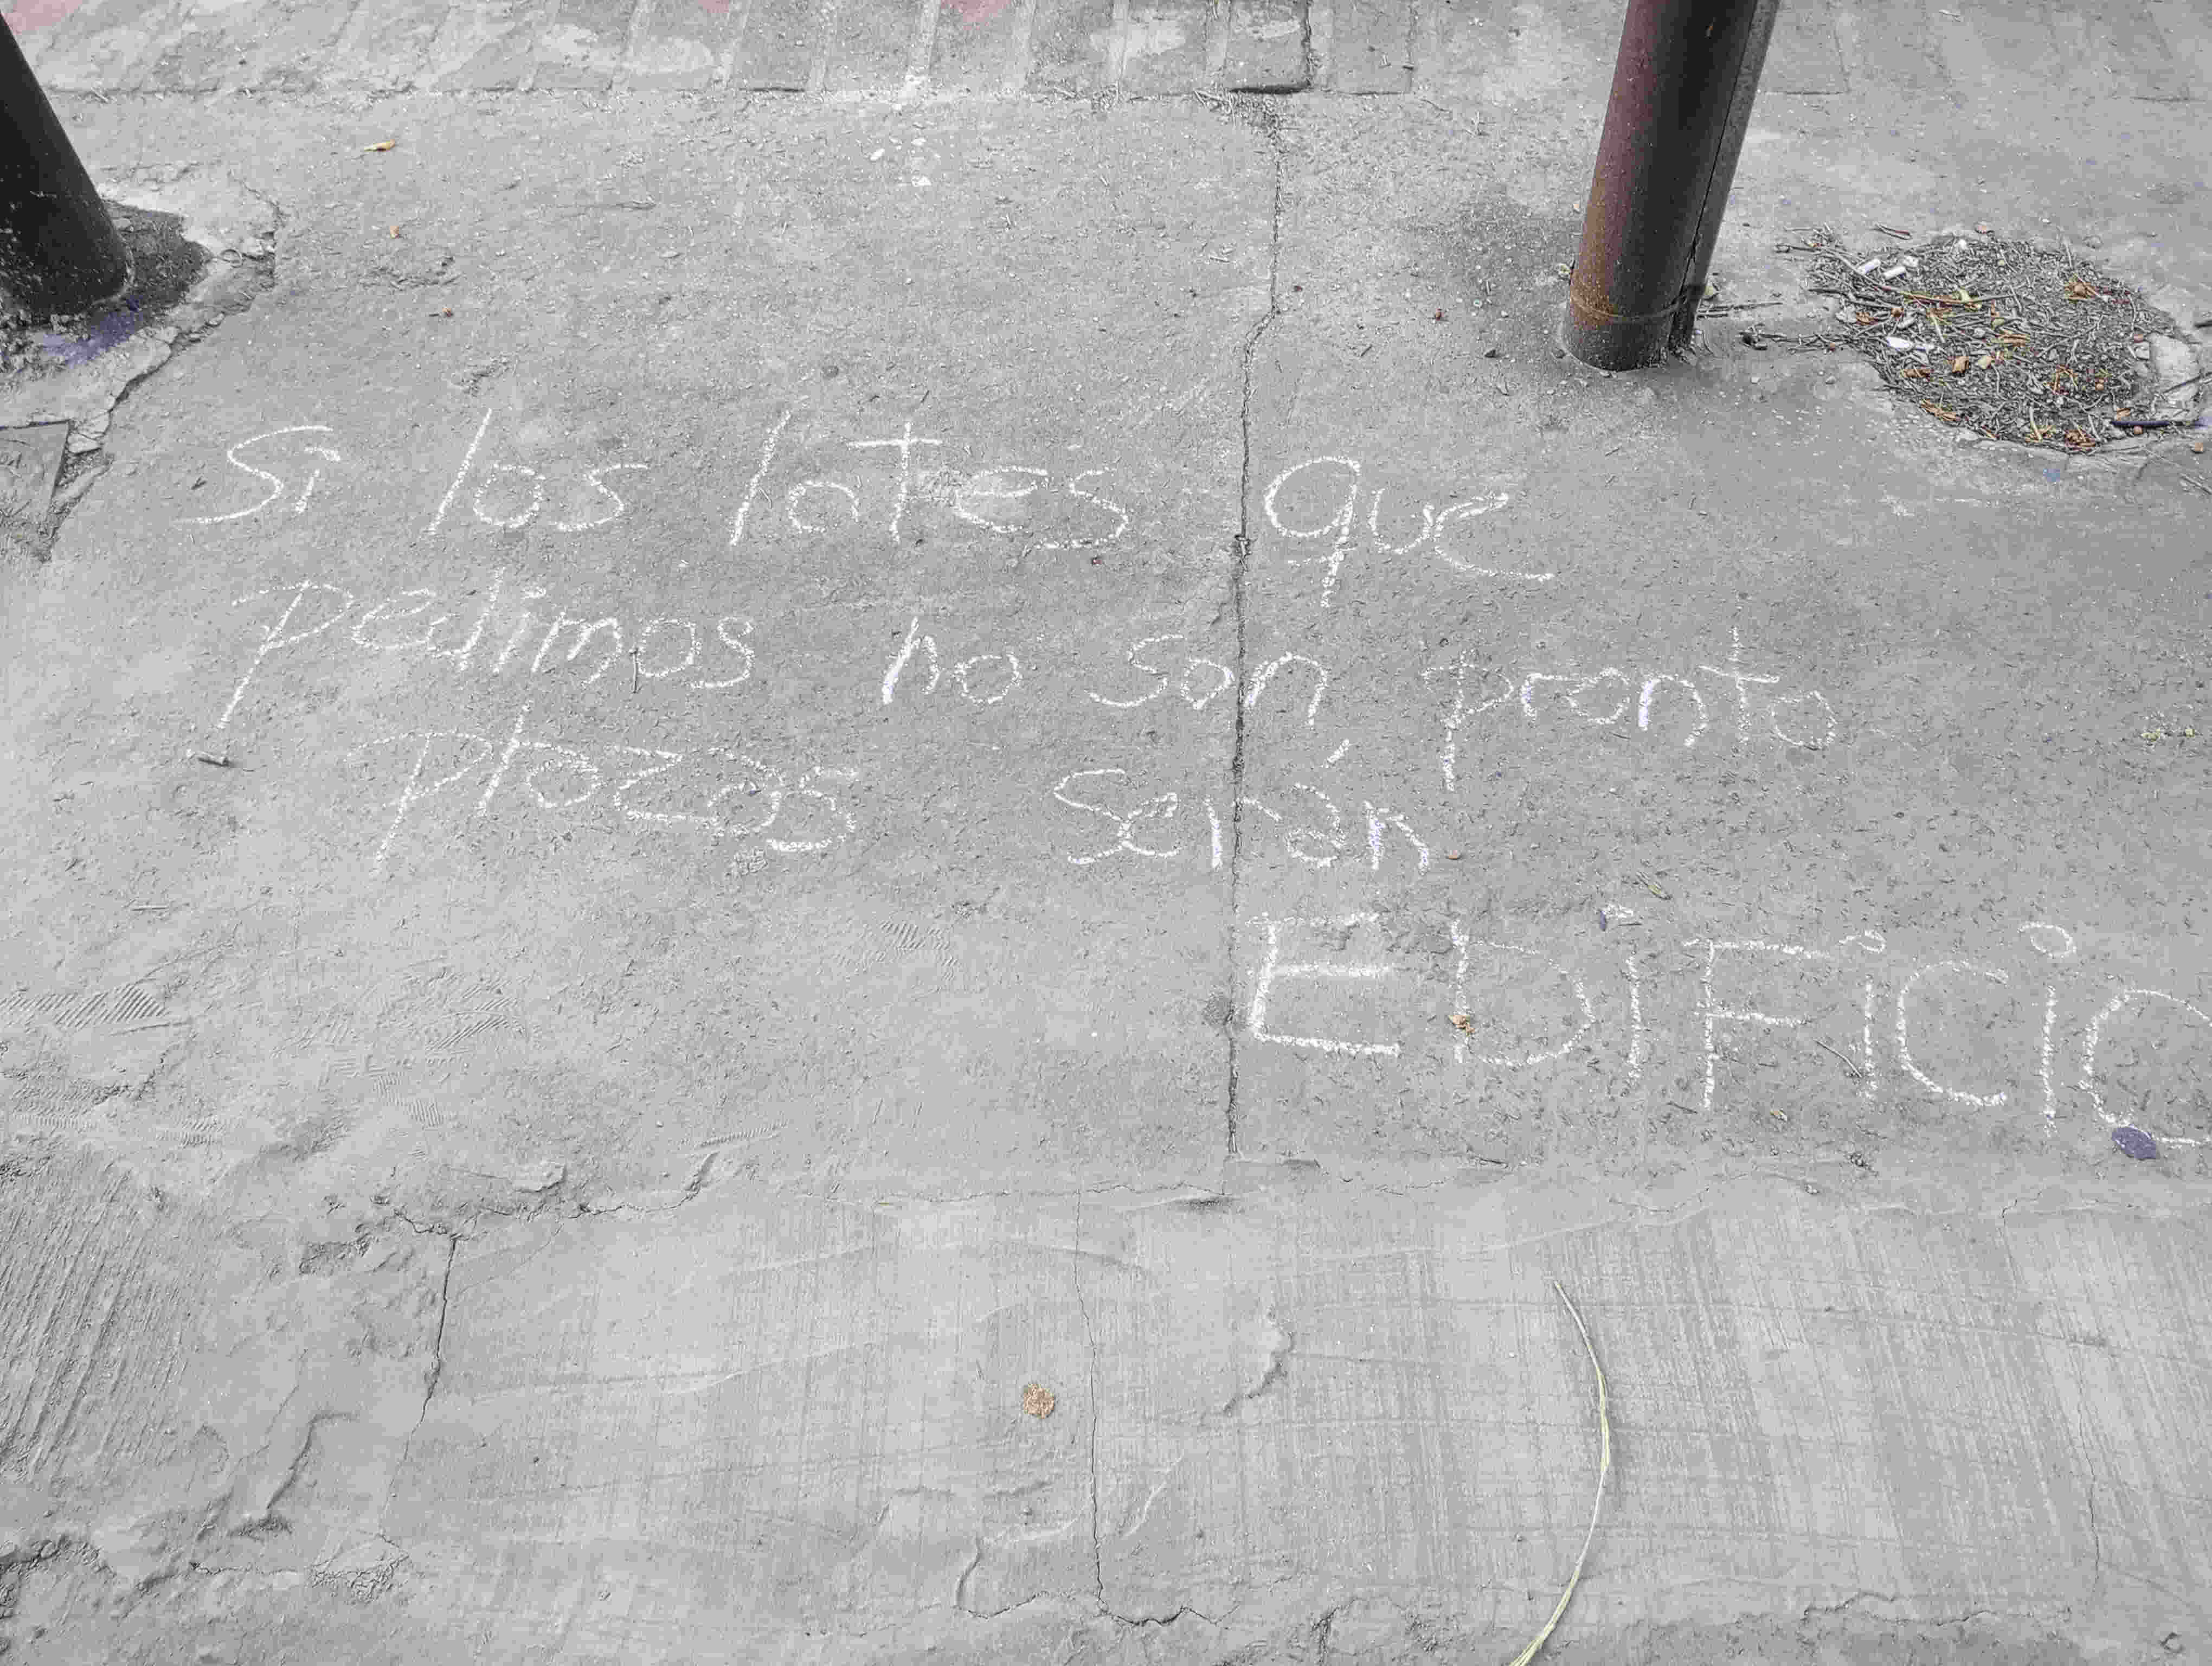 Si los lotes que
pedimos no son pronto
plazas serán
EDiFiCio